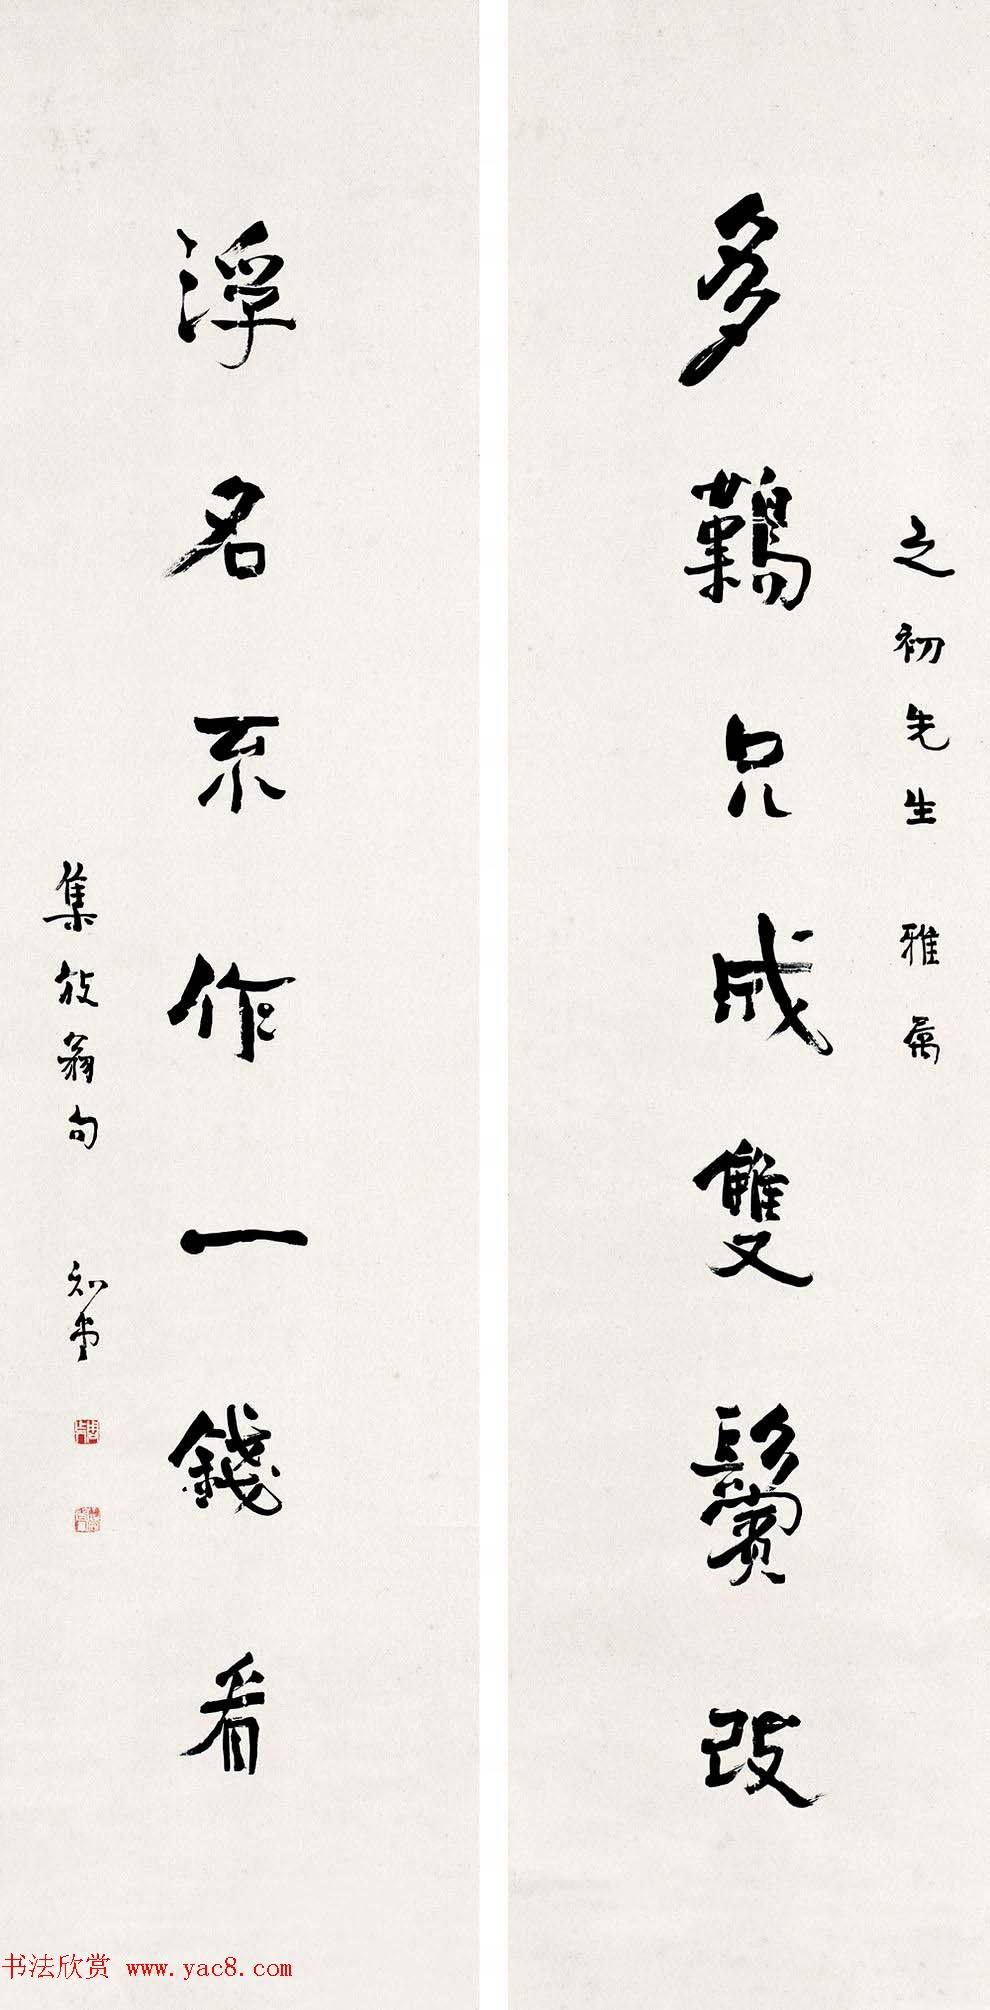 之初先生 雅属
多難只成雙鬢改
浮名不作一錢看
集放翁句 知堂
书法欣赏 www.yac8.com